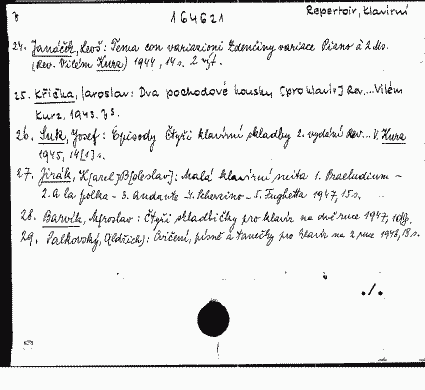 164621
Repertoir, klavírní
24. Janáček, Leoš: Tema con variazioni Zdenčiny variace Piano à 2 ms.
(Rev. Vilém Kurz) 1944, 14 s. 2
25. Křička, Jaroslav: Dva pochodové kousky [pro klavír] Rev... Vilém
Kurz, 1943.
26. Suk, Josef: Episody Čtyři klavírní skladby 2. vydání Rev... V. Kurz
1945, 14 [1] s.
27. Jirák, K[arel] B[oleslav]: Malá klavírní suita 1. Praeludium -
2. A la polka - 3. Andante - 4. Scherzino - 5. Fughetta 1947, 15 s.
28. Barvík, Miroslav: Čtyři skladbičky pro klavír na dvě ruce 1947,
29. Palkovský, O[ldřich]: Cvičení, písně a tanečky pro klavír na 2 ruce 1948, 18 s.
./.